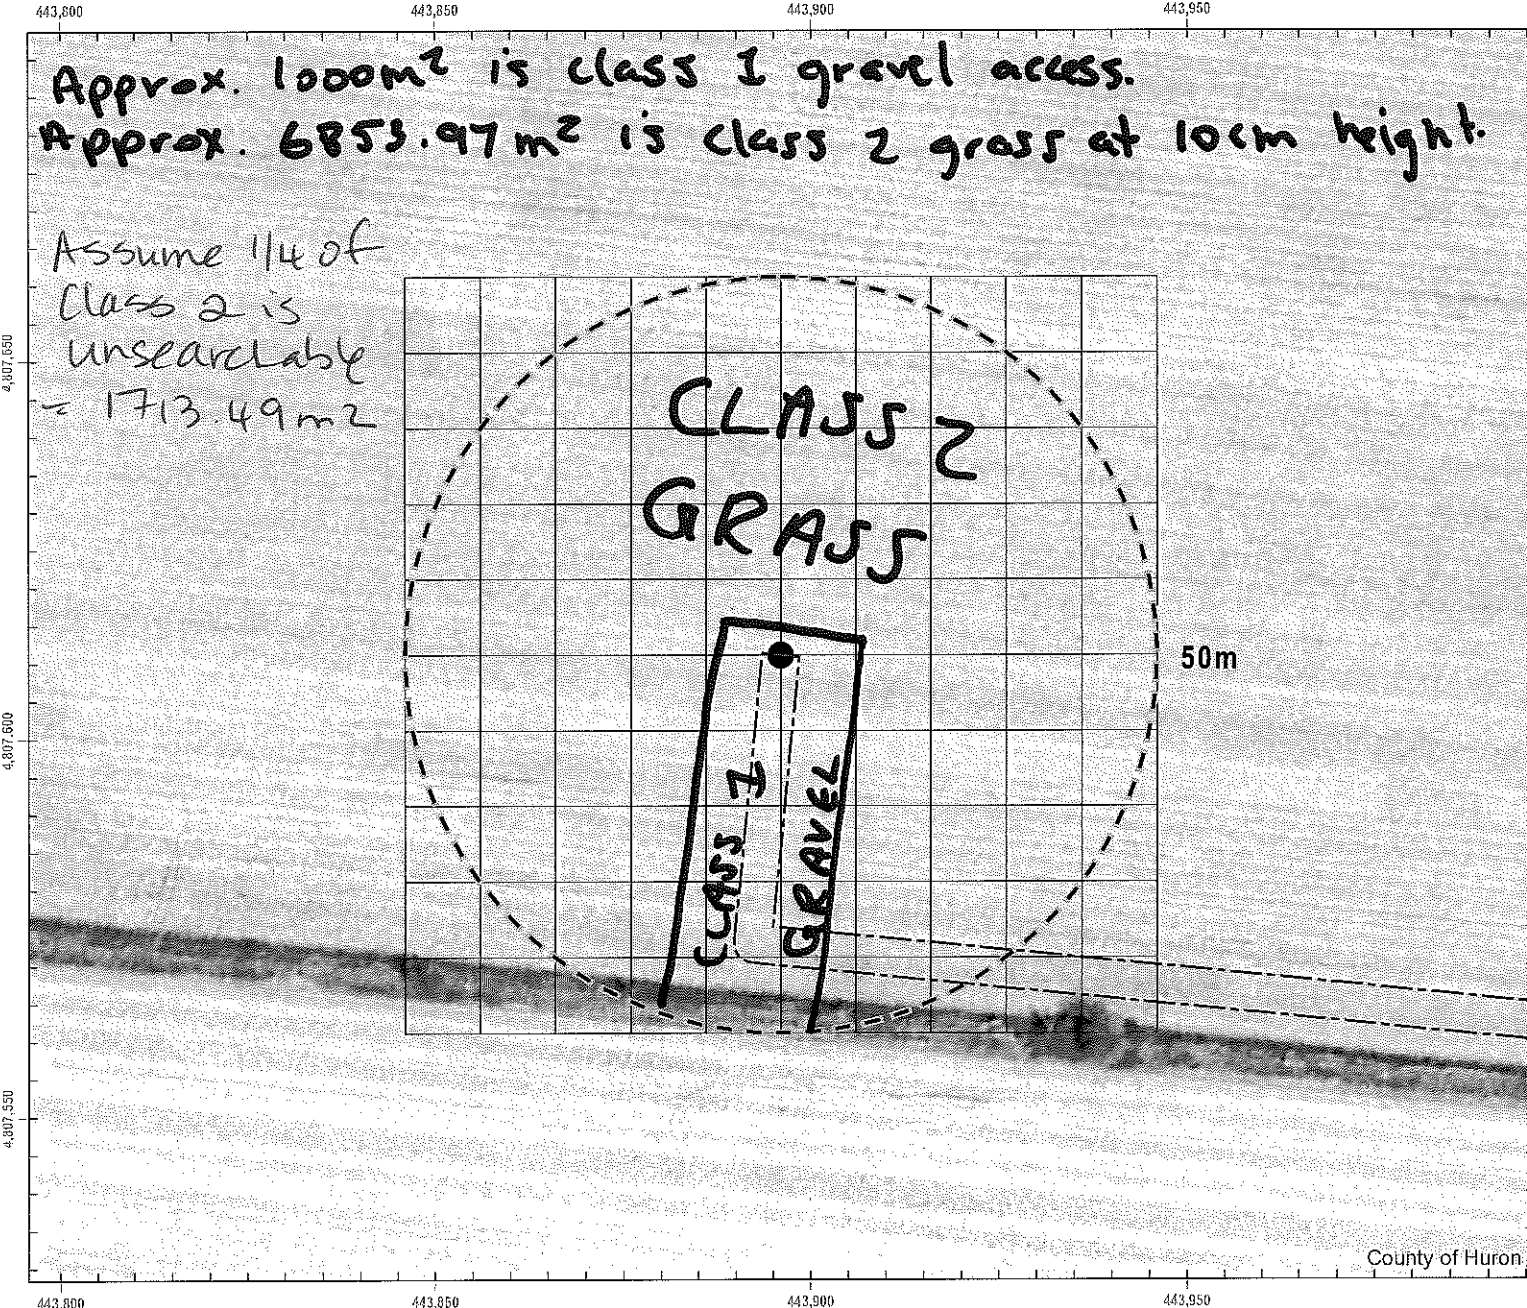 443,800 443,850 443,900 443,950
Approx. 1000m² is class 1 gravel access.
Approx. 6853.97m² is class 2 grass at 10cm height.
Assume 1/4 of
Class 2 is
unsearchable
= 1713.49m2
4,807,650
CLASS 2
GRASS
50m
4,807,600
CLASS 1
GRAVEL
4,807,550
County of Huron
443,800 443,850 443,900 443,950